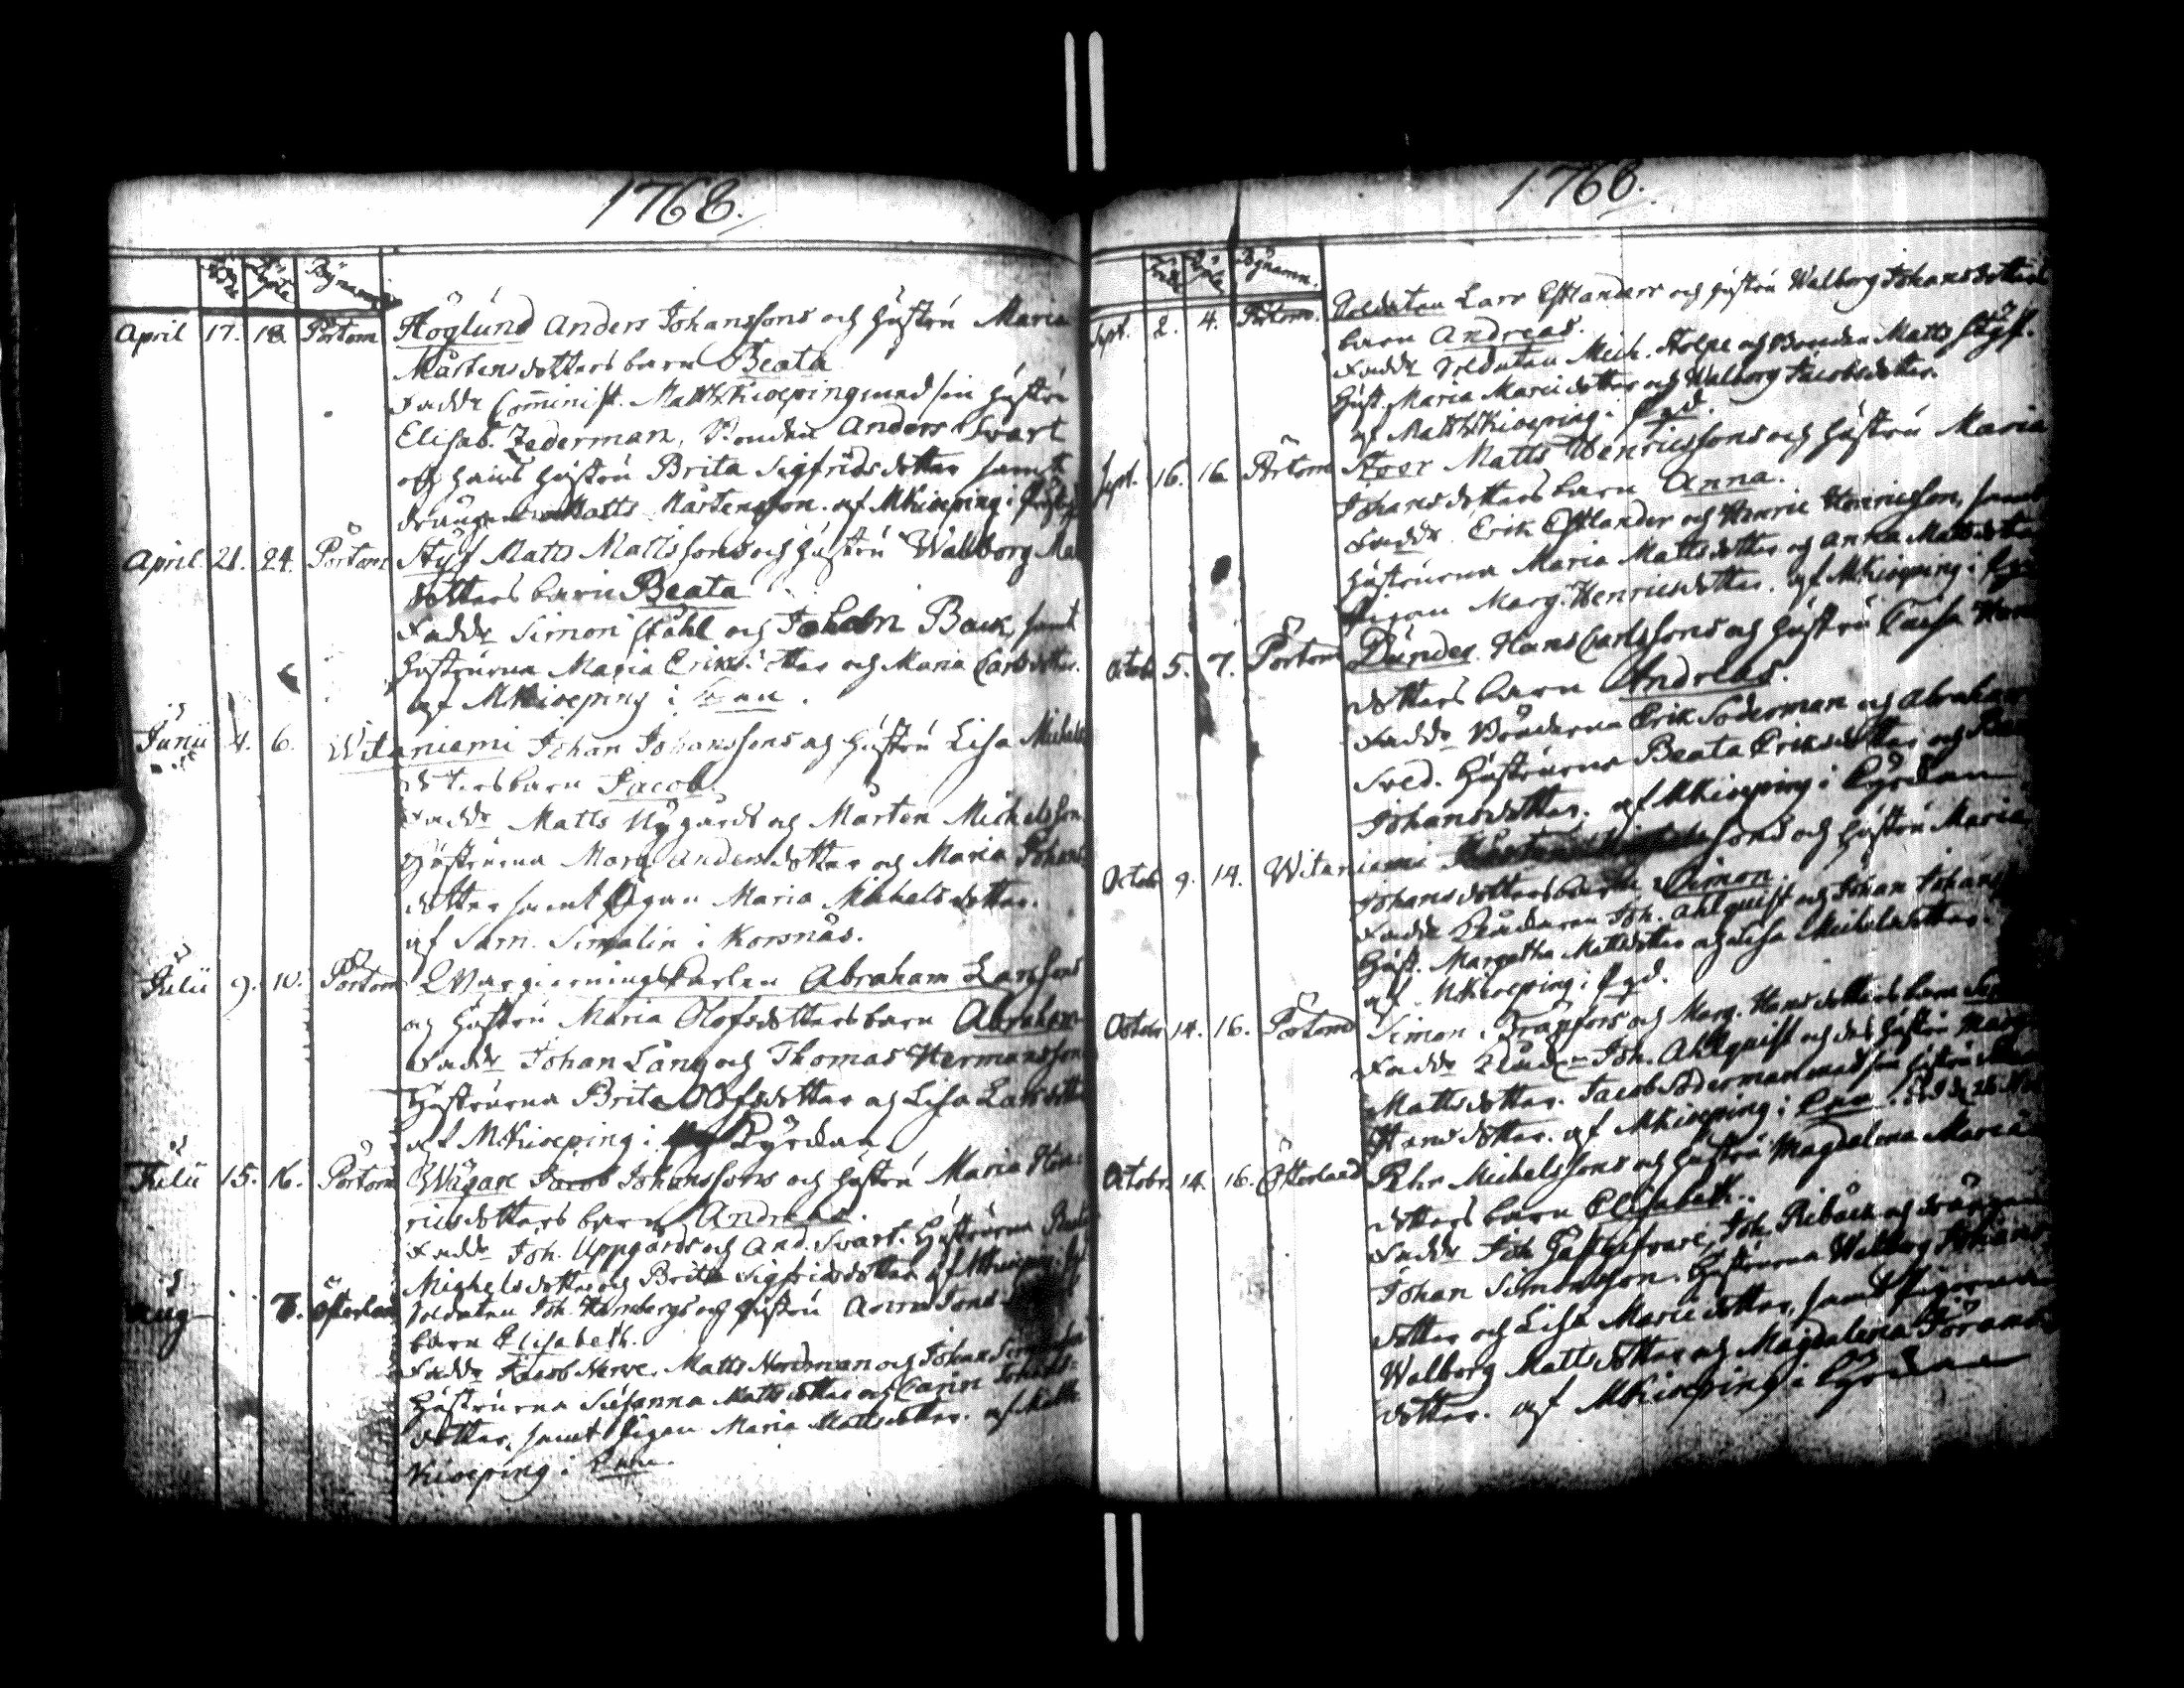 1768.
Född Döpte Bynamn
April 17. 18. Pörtom Höglund Anders Johanssons och hustru Maria
Mårtensdotters barn Beata
Fadd: Comminist. Matth. Kiveping med sin hustru
Elisab. Zederman, Bonden Anders Svart
och hans hustru Brita Sigfridsdotter samt
drängen Matts Mårtensson. af MKiveping i
April 21. 24. Pörtom Styf Matts Mattssons och hustru Walborg
dotters barn Beata
Fadd: Simon Ståhl och Johan Back, samt
hustrurna Maria Eriksdotter och Maria Carlsdotter.
af MKiveping i
Junii 4. 6. Witaniemi Johan Johanssons och hustru Lisa Michels
dotters barn Jacob
Fadd: Matts Nygårds och Mårten Michelsson
Hustrurna Marg. Andersdotter och Maria Johans
dotter samt Pigan Maria Michelsdotter.
af Sam. Simalin i Korsnäs.
Julii 9. 10. Pörtom Abraham Larssons
och hustru Maria Olofsdotters barn Abraham
Fadd: Johan Lång och Thomas Hermansson
Hustrurna Brita Olofsdotter och Lisa Larsdotter
af MKiveping i Kyrckan
Julii 15. 16. Pörtom Wägare Jacob Johanssons och hustru Maria Hen:
ricsdotters barn Andreas.
Fadd: Joh. Uppgårds och And. Svart. Hustrurna
Michelsdotter och Brita Sigfridsdotter af MKiveping
Aug 7. Österland Soldaten Joh. och hustru Anna
barn Elisabeth.
Fadd: Jacob Matts Nordman och Johan
Hustrurna Susanna Mattsdotter och Carin Johans:
dotter, samt Pigan Maria Mattsdotter. af Matth.
Kiveping i
1768.
Född Döpte Bynamn.
Sept. 2. 4. Pörtom. Soldaten Lars Estlanders och hustru Walborg Johansdotters
barn Andreas.
Fadd: Soldaten Mich. Stolpe och Bonden Matts Styf.
Hust. Maria Mariædotter och Walborg Jacobsdotter.
af Matth. Kiveping i
Sept. 16. 16. Pörtom Matts Henricssons och hustru Maria
Johansdotters barn Anna.
Fadd: Erik Estlander och Henric Henricsson, samt
hustrurna Maria Mattsdotter och Anna Mattsdotter
Pigan Marg. Henricsdotter. af MKiveping i
Octob. 5. 7. Pörtom Dunder Hans Carlssons och hustru Caisa
dotters barn Andreas.
Fadd: Bönderna Erik Söderman och Abraham
Sved. Hustrurna Beata Eriksdotter och
Johansdotter. af MKiveping i Kyrckan
Octob. 9. 14. Witaniemi sons och hustru Maria
Johansdotters barn Simon.
Fadd: Joh. Ahlquist och Johan Johans
Hust. Margetha Mattsdotter och Lisa Michelsdotter.
af MKiveping i
Octobr. 14. 16. Pörtom Simon Trappers och Marg. Hansdotters barn
Fadd: Joh. Ahlquist och des hustru Marg.
Mattsdotter. Jacob Söderman med sin hustru
Hansdotter. af MKiveping i
Octobr. 14. 16. Österland Pehr Michelssons och hustru Magdalena Mariæ
dotters barn Elisabeth.
Fadd: Joh. Joh. Ribäck och drängen
Johan Simonsson. Hustrurna Walborg Johans
dotter och Lisa Mariædotter, samt Pigorna
Walborg Mattsdotter och Magdalena Görans
dotter. af MKiveping i Kyrckan